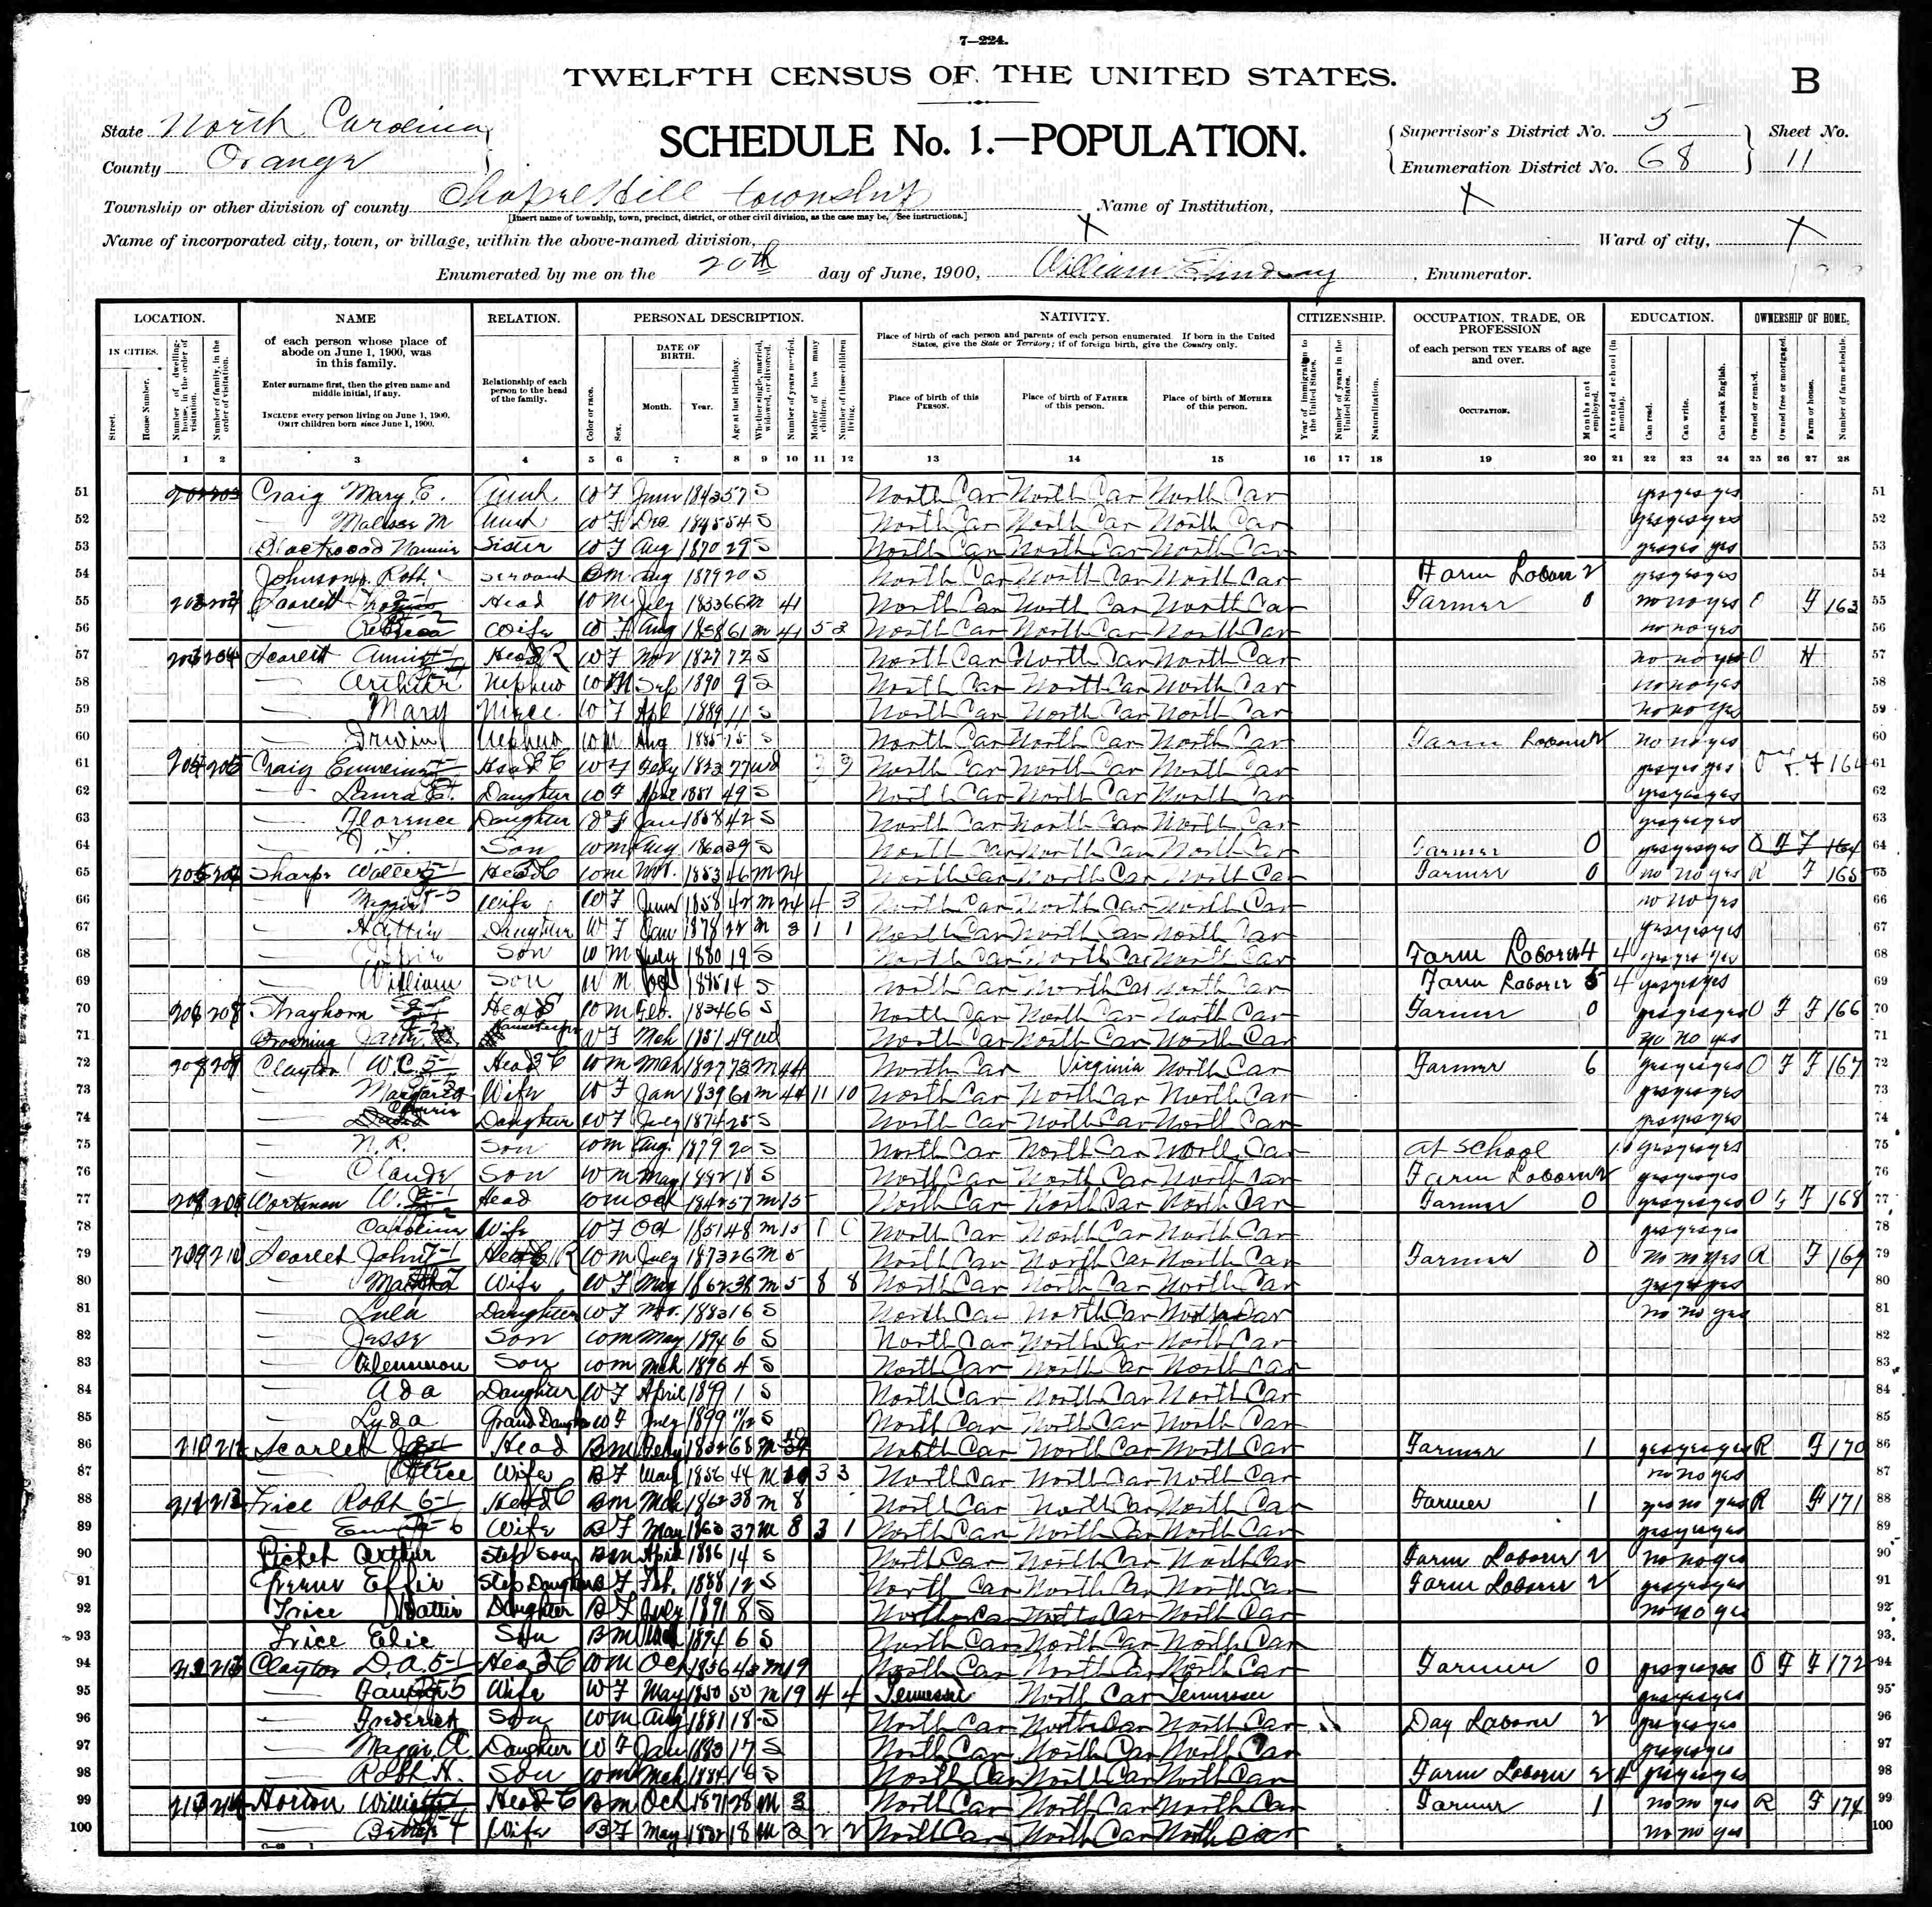 7—224.
TWELFTH CENSUS OF THE UNITED STATES.
B
State North Carolina
SCHEDULE No. 1.—POPULATION.
Supervisor's District No. 5
Sheet No.
County Orange
Enumeration District No. 68
11
Township or other division of county Chapel Hill township
Name of Institution, X
[Insert name of township, town, precinct, district, or other civil division, as the case may be. See instructions.]
Name of incorporated city, town, or village, within the above-named division, X
Ward of city, X
Enumerated by me on the 20th day of June, 1900, William Lindsay, Enumerator.
LOCATION. NAME RELATION. PERSONAL DESCRIPTION. NATIVITY. CITIZENSHIP. OCCUPATION, TRADE, OR PROFESSION EDUCATION. OWNERSHIP OF HOME.
IN CITIES.
Street.
House Number.
Number of dwelling-house, in the order of visitation.
Number of family, in the order of visitation.
of each person whose place of abode on June 1, 1900, was in this family.
Enter surname first, then the given name and middle initial, if any.
INCLUDE every person living on June 1, 1900.
OMIT children born since June 1, 1900.
Relationship of each person to the head of the family.
Color or race.
Sex.
DATE OF BIRTH.
Month.
Year.
Age at last birthday.
Whether single, married, widowed, or divorced.
Number of years married.
Mother of how many children.
Number of these children living.
Place of birth of each person and parents of each person enumerated. If born in the United States, give the State or Territory; if of foreign birth, give the Country only.
Place of birth of this PERSON.
Place of birth of FATHER of this person.
Place of birth of MOTHER of this person.
Year of immigration to the United States.
Number of years in the United States.
Naturalization.
of each person TEN YEARS of age and over.
OCCUPATION.
Months not employed.
Attended school (in months).
Can read.
Can write.
Can speak English.
Owned or rented.
Owned free or mortgaged.
Farm or house.
Number of farm schedule.
1 2 3 4 5 6 7 8 9 10 11 12 13 14 15 16 17 18 19 20 21 22 23 24 25 26 27 28
51 Craig Mary E. Aunt W F June 1843 57 S North Car North Car North Car yes yes yes 51
52 M Aunt W F Dec 1845 54 S North Car North Car North Car yes yes yes 52
53 Nannie Sister W F Aug 1870 29 S North Car North Car North Car yes yes yes 53
54 Johnson Robt. Servant B M Aug 1879 20 S North Car North Car North Car Farm Laborer 2 yes yes yes 54
55 Scarlett Head W M July 1833 66 M 41 North Car North Car North Car Farmer 0 no no yes O F 163 55
56 Wife W F Aug 61 M 41 5 North Car North Car North Car no no yes 56
57 Scarlett Head W F Nov 1827 72 S North Car North Car North Car no no yes O H 57
58 Arthur Nephew W M Sep 1890 9 S North Car North Car North Car no no yes 58
59 Mary Niece W F Apl 1889 11 S North Car North Car North Car no no yes 59
60 Irwin Nephew W M Aug 1885 15 S North Car North Car North Car Farm Laborer no no yes 60
61 Craig Head W F Feby 1823 77 Wd North Car North Car North Car yes yes yes O F 61
62 Laura E. Daughter W F April 49 S North Car North Car North Car yes yes yes 62
63 Florence Daughter W F Jan 1858 42 S North Car North Car North Car yes yes yes 63
64 Son W M Aug 39 S North Car North Car North Car Farmer 0 yes yes yes O F F 164 64
65 Sharpe Walter Head W M Nov. 1853 46 M 24 North Car North Car North Car Farmer 0 no no yes R F 165 65
66 Wife W F June 1858 42 M 24 4 3 North Car North Car North Car no no yes 66
67 Hattie Daughter W F Jan 1878 22 M 3 1 1 North Car North Car North Car yes yes yes 67
68 Son W M July 1880 19 S North Car North Car North Car Farm Laborer 4 4 yes yes yes 68
69 William Son W M Oct 1885 14 S North Car North Car North Car Farm Laborer 5 4 yes yes yes 69
70 Strayhorn Head W M Feb. 1834 66 S North Car North Car North Car Farmer 0 yes yes yes O F F 166 70
71 Browning Housekeeper W F Mch 1851 49 Wd North Car North Car North Car no no yes 71
72 Clayton W.C. Head W M Mch 1827 73 M 44 North Car Virginia North Car Farmer 6 yes yes yes O F F 167 72
73 Margaret Wife W F Jan 1839 61 M 44 11 10 North Car North Car North Car yes yes yes 73
74 Daughter W F July 1874 25 S North Car North Car North Car yes yes yes 74
75 N. R. Son W M Aug. 1879 20 S North Car North Car North Car At School 10 yes yes yes 75
76 Claude Son W M May 1882 18 S North Car North Car North Car Farm Laborer yes yes yes 76
77 Workman W. Head W M Oct 1842 57 M 15 North Car North Car North Car Farmer 0 yes yes yes O F 168 77
78 Caroline Wife W F Oct 1851 48 M 15 1 0 North Car North Car North Car yes yes yes 78
79 209 210 Scarlet John Head W M July 1873 26 M 5 North Car North Car North Car Farmer 0 no no yes R F 169 79
80 Martha Wife W F May 1862 38 M 5 8 8 North Car North Car North Car yes yes yes 80
81 Lula Daughter W F Nov. 1883 16 S North Car North Car North Car no no yes 81
82 Jesse Son W M May 1894 6 S North Car North Car North Car 82
83 Son W M Mch 1896 4 S North Car North Car North Car 83
84 Ada Daughter W F April 1899 1 S North Car North Car North Car 84
85 Lyda Grand Daughter W F July 1899 S North Car North Car North Car 85
86 Scarlet Head B M Feby 1832 68 M North Car North Car North Car Farmer 1 yes yes yes R F 170 86
87 Alice Wife B F May 1856 44 M 3 3 North Car North Car North Car no no yes 87
88 Trice Robt Head B M Mch 1862 38 M 8 North Car North Car North Car Farmer 1 yes no yes R F 171 88
89 Wife B F May 1863 37 M 8 3 1 North Car North Car North Car yes yes yes 89
90 Picket Arthur Step Son B M April 1886 14 S North Car North Car North Car Farm Laborer 2 no no yes 90
91 Effie Step Daughter B F Feb. 1888 12 S North Car North Car North Car Farm Laborer 2 yes yes yes 91
92 Trice Hattie Daughter B F July 1891 8 S North Car North Car North Car no no yes 92
93 Trice Elie Son B M 1894 6 S North Car North Car North Car 93
94 Clayton D.A. Head W M Oct 1856 43 M 19 North Car North Car North Car Farmer 0 yes yes yes O F F 172 94
95 Wife W F May 1850 50 M 19 4 4 Tennessee North Car Tennessee yes yes yes 95
96 Frederick Son W M Aug 1881 18 S North Car North Car North Car Day Laborer 2 yes yes yes 96
97 Maggie A Daughter W F Jan 1883 17 S North Car North Car North Car yes yes yes 97
98 Robt H. Son W M Mch 1884 16 S North Car North Car North Car Farm Laborer 2 4 yes yes yes 98
99 Horton William Head B M Oct 1871 28 M 3 North Car North Car North Car Farmer 1 no no yes R F 174 99
100 Wife B F May 1882 18 M 3 2 2 North Car North Car North Car no no yes 100